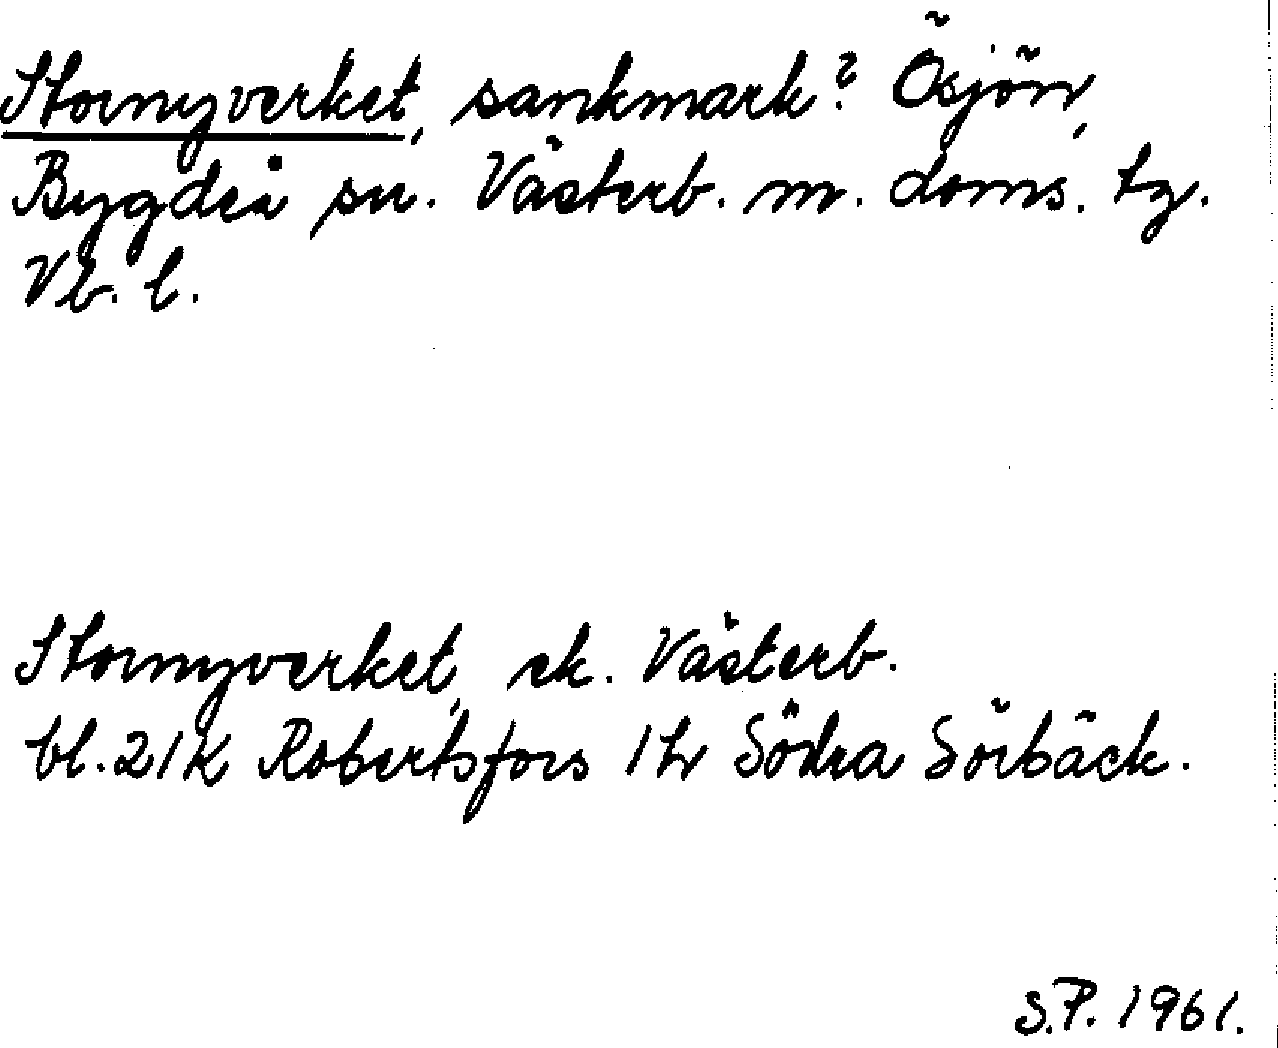 Stormyverket, sankmark? Ösjön,
Bygdeå sn. Västerb. m. doms. tg.
Vb. l.
Stormyverket, ek. Västerb.
bl. 21K Robertsfors 1 h Södra Sörbäck.
S.P. 1961.